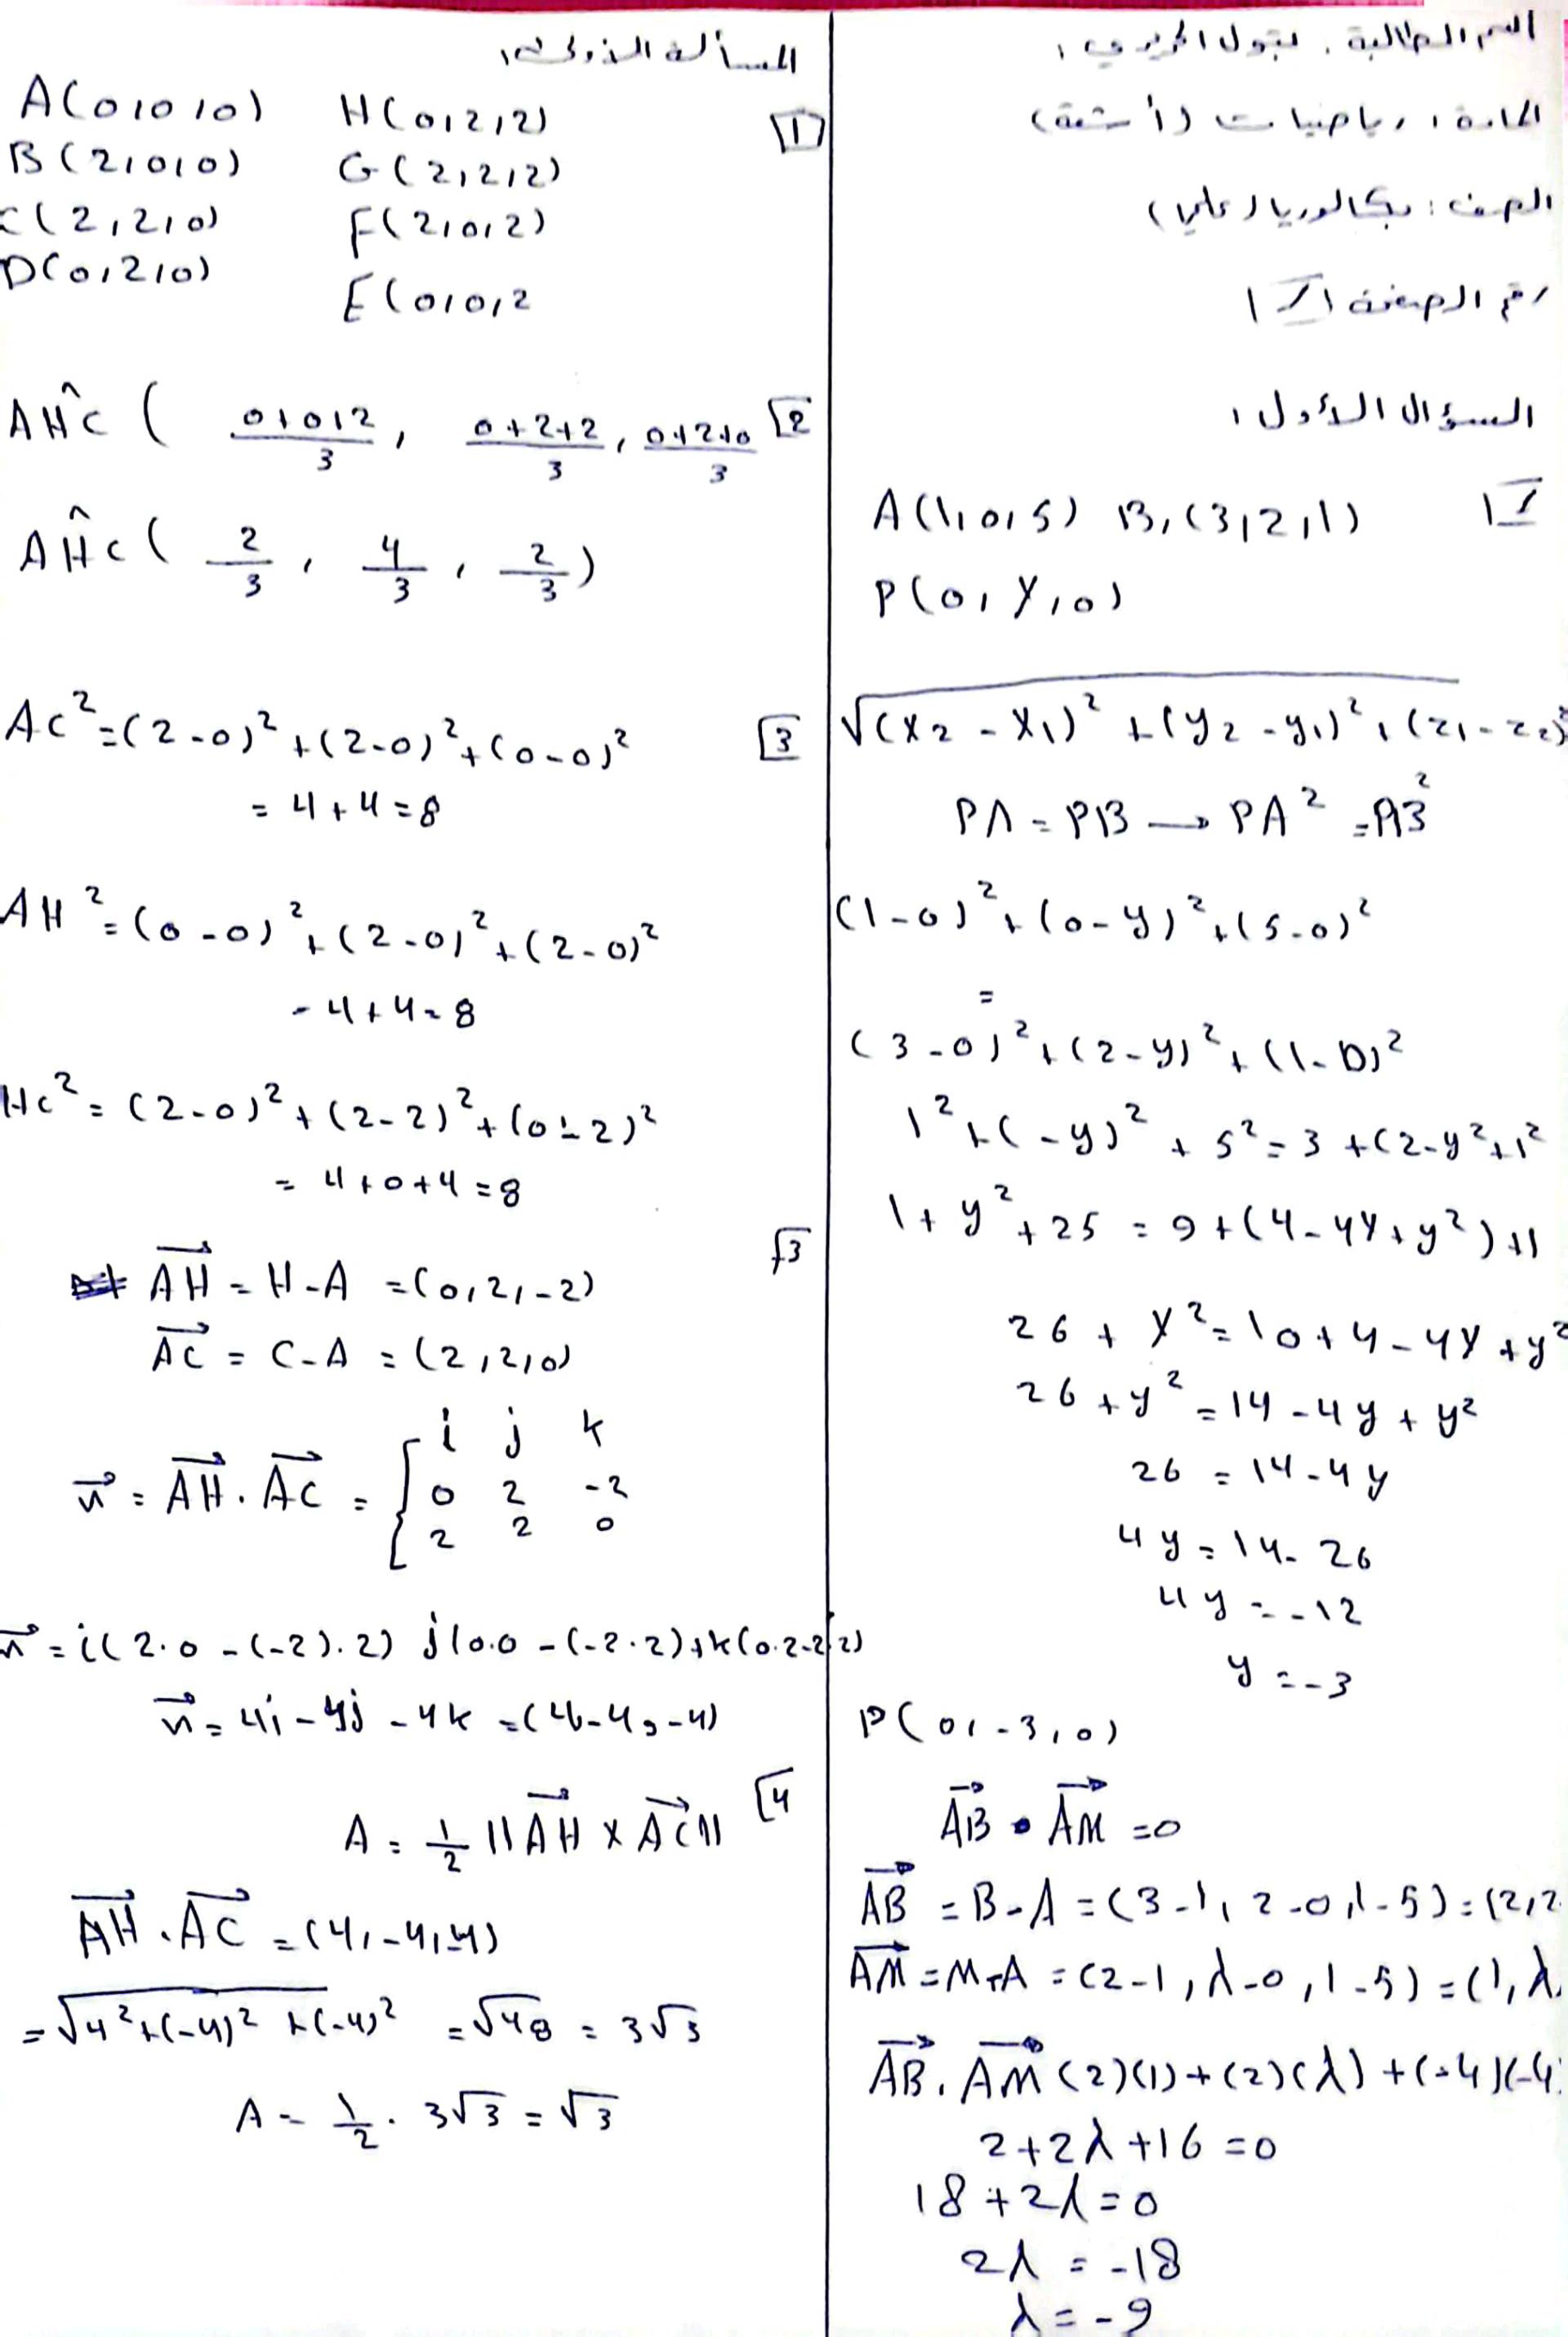 اسم الطالبة: بتول الحريري:
المادة: رياضيات (أشعة)
الصف: بكالوريا (علمي)
رقم الصفحة 1
السؤال الأول:
1
A(1,0,5) B,(3,2,1)
P(0, y,0)
√(x2 - x1)² + (y2 - y1)² + (z1 - z2)²
PA = PB → PA² = PB²
(1-0)² + (0-y)² + (5-0)²
=
(3-0)² + (2-y)² + (1-0)²
1² + (-y)² + 5² = 3 + (2-y²+1²
1 + y² + 25 = 9 + (4 - 4y + y²) + 1
26 + y² = 10 + 4 - 4y + y²
26 + y² = 14 - 4y + y²
26 = 14 - 4y
4y = 14 - 26
4y = -12
y = -3
P(0, -3, 0)
AB • AM = 0
AB = B - A = (3-1, 2-0, 1-5) = (2,2
AM = M - A = (2-1, λ-0, 1-5) = (1, λ,
AB . AM (2)(1) + (2)(λ) + (-4)(-4)
2 + 2λ + 16 = 0
18 + 2λ = 0
2λ = -18
λ = -9
المسألة الأولى:
1
A(0,0,0) H(0,2,2)
B(2,0,0) G(2,2,2)
C(2,2,0) F(2,0,2)
D(0,2,0)
E(0,0,2
2
AĤC ( 0+0+2/3 , 0+2+2/3 , 0+2+0/3
AĤC ( 2/3 , 4/3 , 2/3 )
3
AC² = (2-0)² + (2-0)² + (0-0)²
= 4 + 4 = 8
AH² = (0-0)² + (2-0)² + (2-0)²
= 4 + 4 = 8
HC² = (2-0)² + (2-2)² + (0-2)²
= 4 + 0 + 4 = 8
3
AH = H - A = (0,2,-2)
AC = C - A = (2,2,0)
i j k
n = AH . AC = 0 2 -2
2 2 0
n = i(2.0 - (-2).2) j(0.0 - (-2.2) + k(0.2-2.2)
n = 4i - 4j - 4k = (4,-4,-4)
4
A = 1/2 ||AH × AC||
AH . AC = (4,-4,-4)
= √4² + (-4)² + (-4)² = √48 = 3√3
A = 1/2 . 3√3 = √3